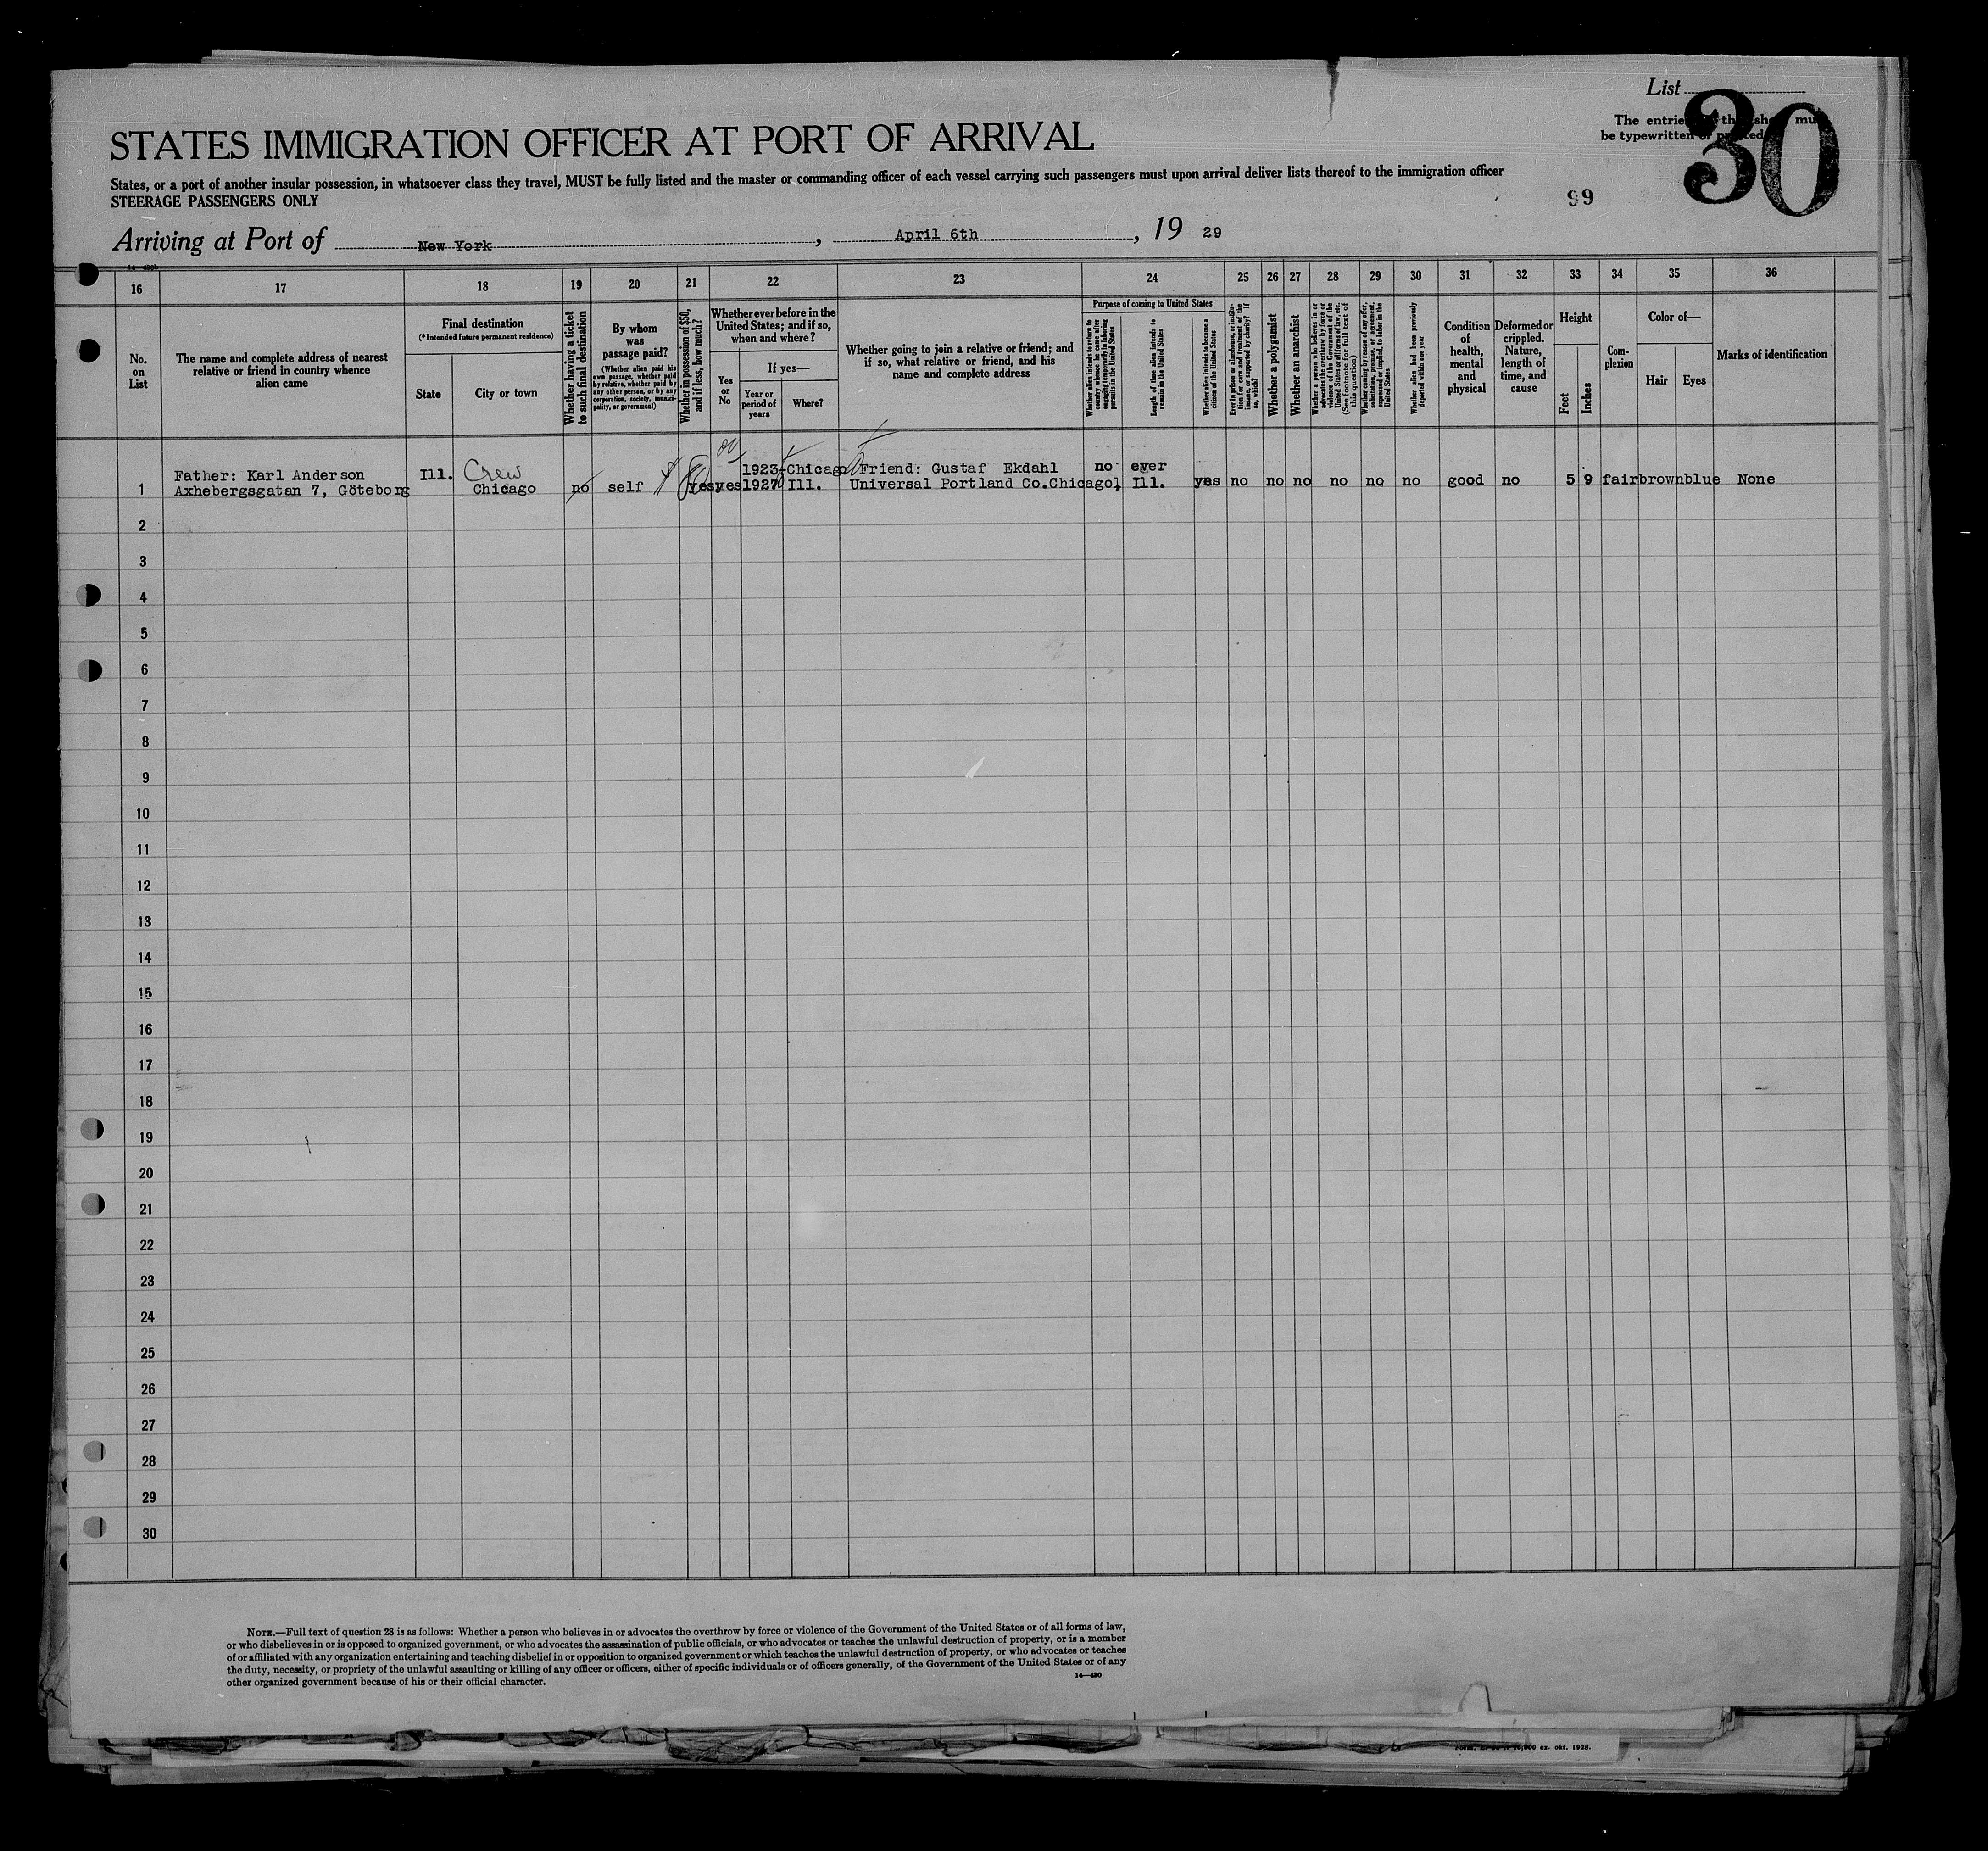 List
30
The entries
be typewritten or printed
STATES IMMIGRATION OFFICER AT PORT OF ARRIVAL
States, or a port of another insular possession, in whatsoever class they travel, MUST be fully listed and the master or commanding officer of each vessel carrying such passengers must upon arrival deliver lists thereof to the immigration officer
STEERAGE PASSENGERS ONLY
99
Arriving at Port of New York, April 6th, 19 29
16 17 18 19 20 21 22 23 24 25 26 27 28 29 30 31 32 33 34 35 36
No. on List
The name and complete address of nearest relative or friend in country whence alien came
Final destination
(*Intended future permanent residence)
State
City or town
Whether having a ticket to such final destination
By whom was passage paid?
(Whether alien paid his own passage, whether paid by relative, whether paid by any other person, or by any corporation, society, municipality, or government)
Whether in possession of $50, and if less, how much?
Whether ever before in the United States; and if so, when and where?
Yes or No
If yes—
Year or period of years
Where?
Whether going to join a relative or friend; and if so, what relative or friend, and his name and complete address
Purpose of coming to United States
Whether alien intends to return to country whence he came after engaging temporarily in laboring pursuits in the United States
Length of time alien intends to remain in the United States
Whether alien intends to become a citizen of the United States
Ever in prison or almshouse, or institution for care and treatment of the insane, or supported by charity? If so, which?
Whether a polygamist
Whether an anarchist
Whether a person who believes in or advocates the overthrow by force or violence of the Government of the United States or all forms of law, etc. (See footnote for full text of this question)
Whether coming by reason of any offer, solicitation, promise, or agreement, expressed or implied, to labor in the United States
Whether alien had been previously deported within one year
Condition of health, mental and physical
Deformed or crippled. Nature, length of time, and cause
Height
Feet
Inches
Complexion
Color of—
Hair
Eyes
Marks of identification
Crew
Father: Karl Anderson Ill. 1923- Chicago Friend: Gustaf Ekdahl no ever
1 Axhebergsgatan 7, Göteborg Chicago no self yes yes 1927 Ill. Universal Portland Co.Chicago, Ill. yes no no no no no no good no 5 9 fair brown blue None
2
3
4
5
6
7
8
9
10
11
12
13
14
15
16
17
18
19
20
21
22
23
24
25
26
27
28
29
30
NOTE.—Full text of question 28 is as follows: Whether a person who believes in or advocates the overthrow by force or violence of the Government of the United States or of all forms of law,
or who disbelieves in or is opposed to organized government, or who advocates the assassination of public officials, or who advocates or teaches the unlawful destruction of property, or is a member
of or affiliated with any organization entertaining and teaching disbelief in or opposition to organized government or which teaches the unlawful destruction of property, or who advocates or teaches
the duty, necessity, or propriety of the unlawful assaulting or killing of any officer or officers, either of specific individuals or of officers generally, of the Government of the United States or of any
other organized government because of his or their official character.
14—430
ex. okt. 1928.